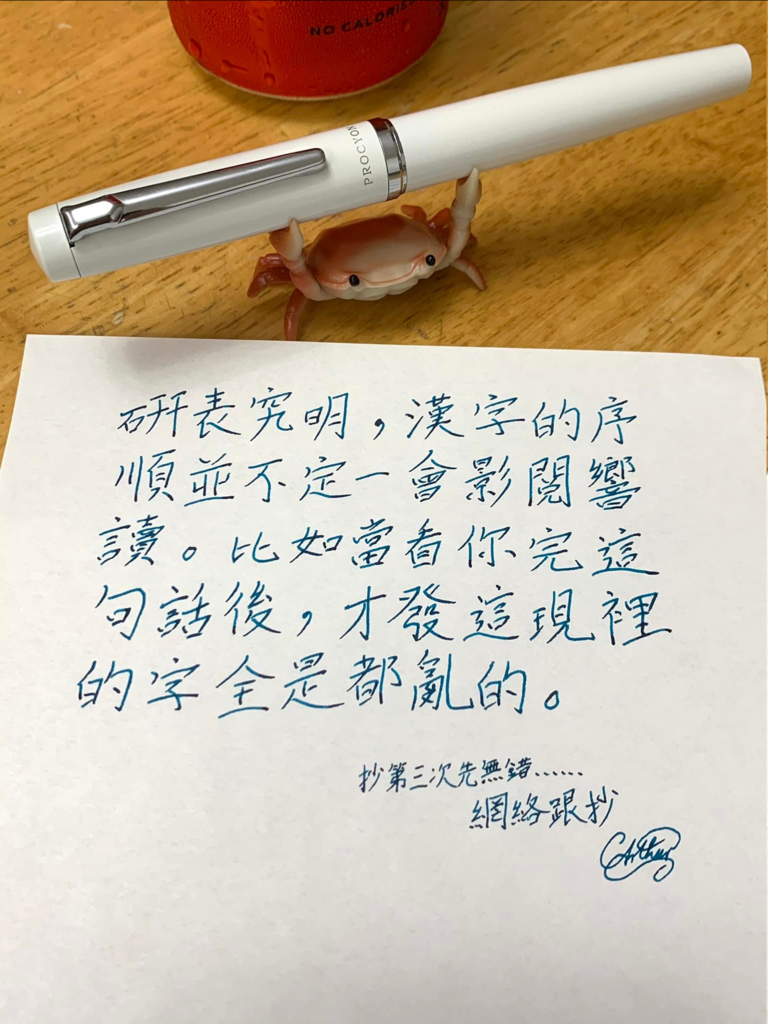 NO CALORIES
PROCYON
研表究明，漢字的序
順並不定一會影閱響
讀。比如當看你完這
句話後，才發這現裡
的字全是都亂的。
抄第三次先無錯……
網絡跟抄
Arthur